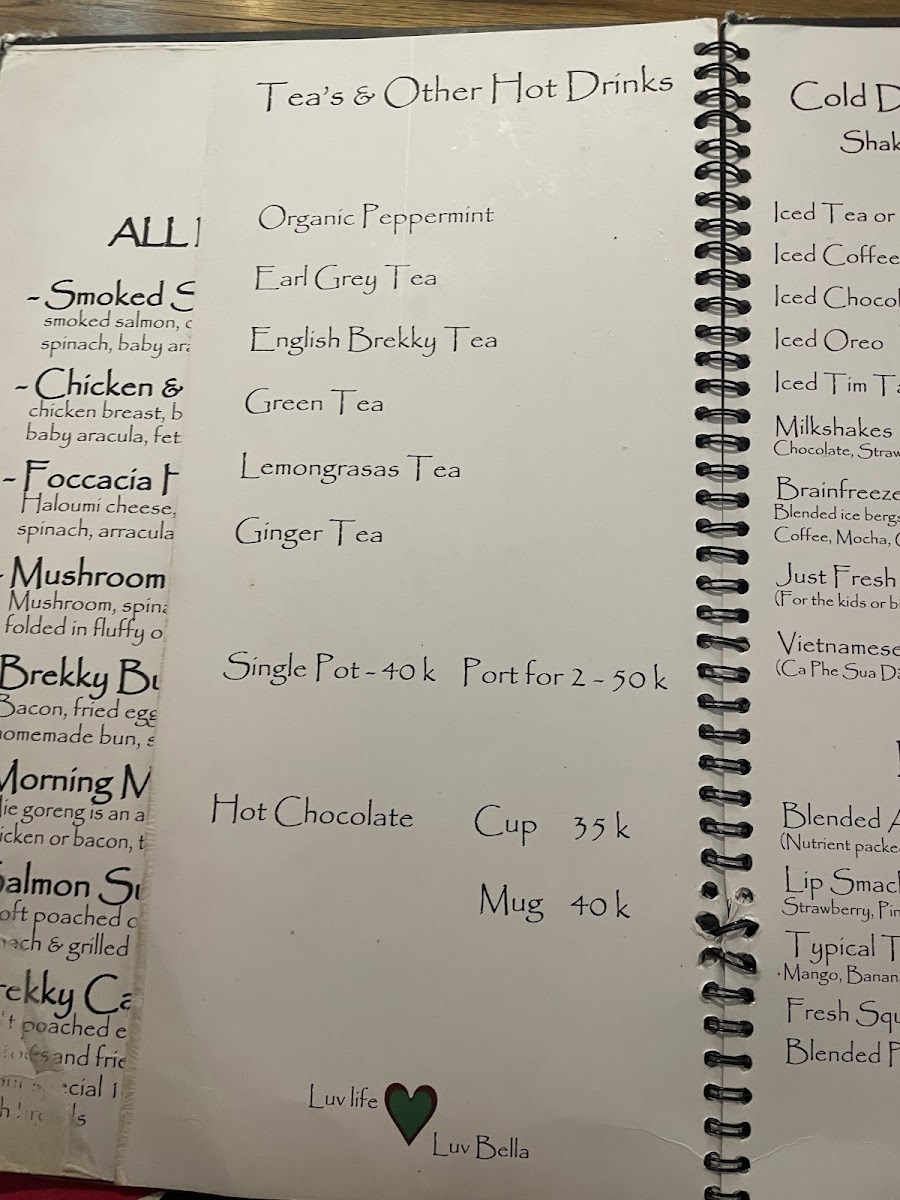 ALL
- Smoked
smoked salmon,
spinach, baby
- Chicken &
chicken breast,
baby aracula, fet
- Foccacia
Haloumi cheese,
spinach, arracula
Mushroom
Mushroom,
folded in fluffy
Brekky
Bacon, fried
homemade bun,
Morning
goreng is an
chicken or bacon,
Salmon
poached
& grilled
Ca
poached
and
Tea's & Other Hot Drinks
Organic Peppermint
Earl Grey Tea
English Brekky Tea
Green Tea
Lemongrasas Tea
Ginger Tea
Single Pot - 40 k Port for 2 - 50 k
Hot Chocolate Cup 35 k
Mug 40 k
Luv life
Luv Bella
Cold D
Shak
Iced Tea or
Iced Coffee
Iced Chocol
Iced Oreo
Iced Tim Ta
Milkshakes
Chocolate, Straw
Brainfreeze
Blended ice bergs
Coffee, Mocha,
Just Fresh
(For the kids or b
Vietnamese
(Ca Phe Sua Da
Blended A
(Nutrient packe
Lip Smac
Strawberry, Pin
Typical T
Mango, Banan
Fresh Squ
Blended P